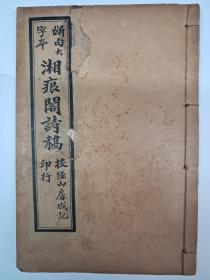 断句大
字本
湘痕閣詩稿
校經山房成記
印行